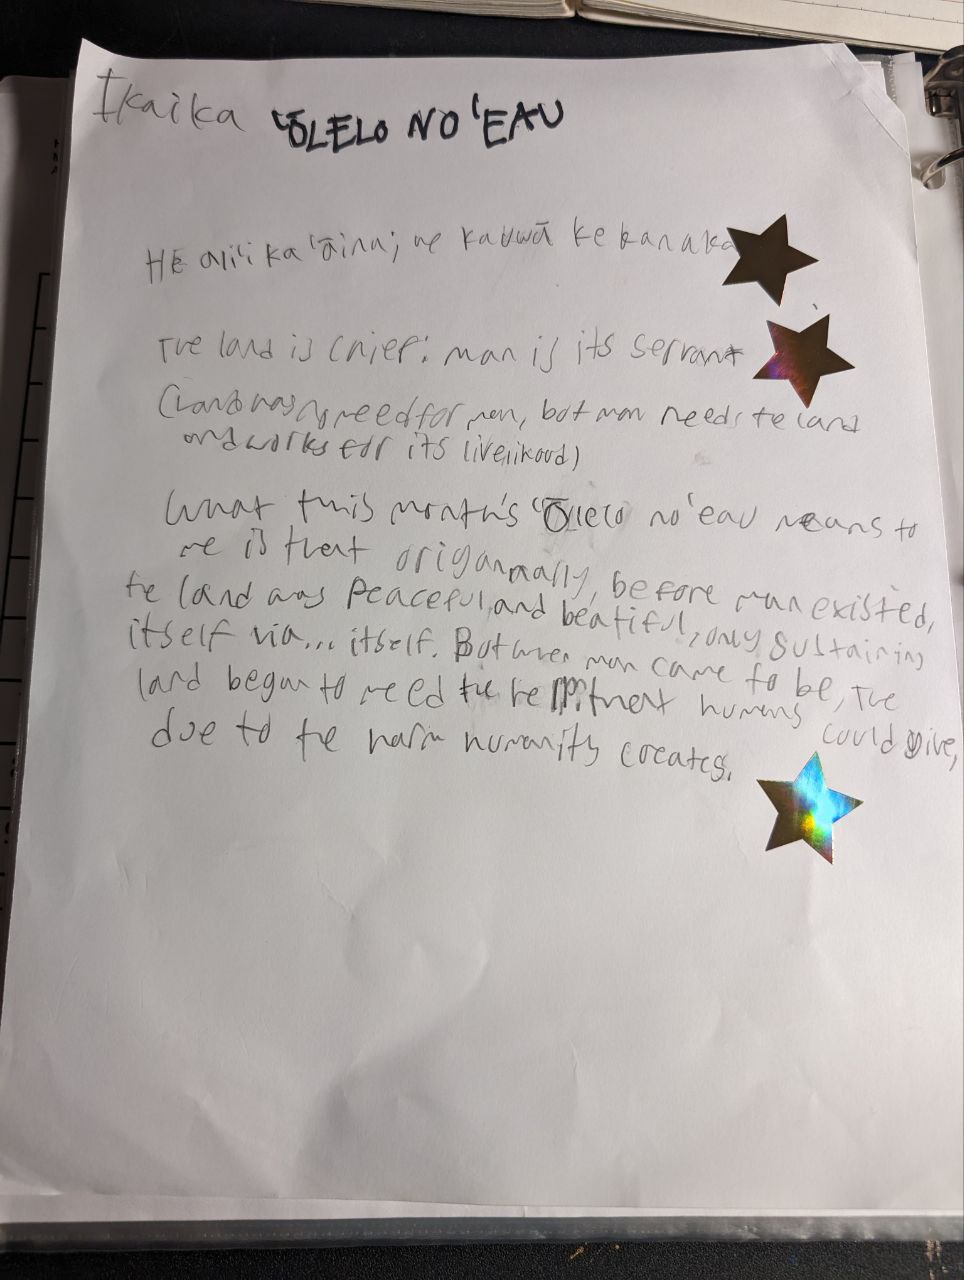 Ikaika 'ŌLELO NO'EAU
HE ali'i ka 'āina; he kauwā ke kanaka
The land is chief: man is its servant
(Land has no need for men, but man needs the land
and works for its livelihood)
What this month's 'Ōlelo no'eau means to
me is that origannally, before man existed,
the land was Peaceful, and beatiful, only sustaining
itself via... itself. But when man came to be, The
land began to need the humans could give,
due to the harm humanity creates.